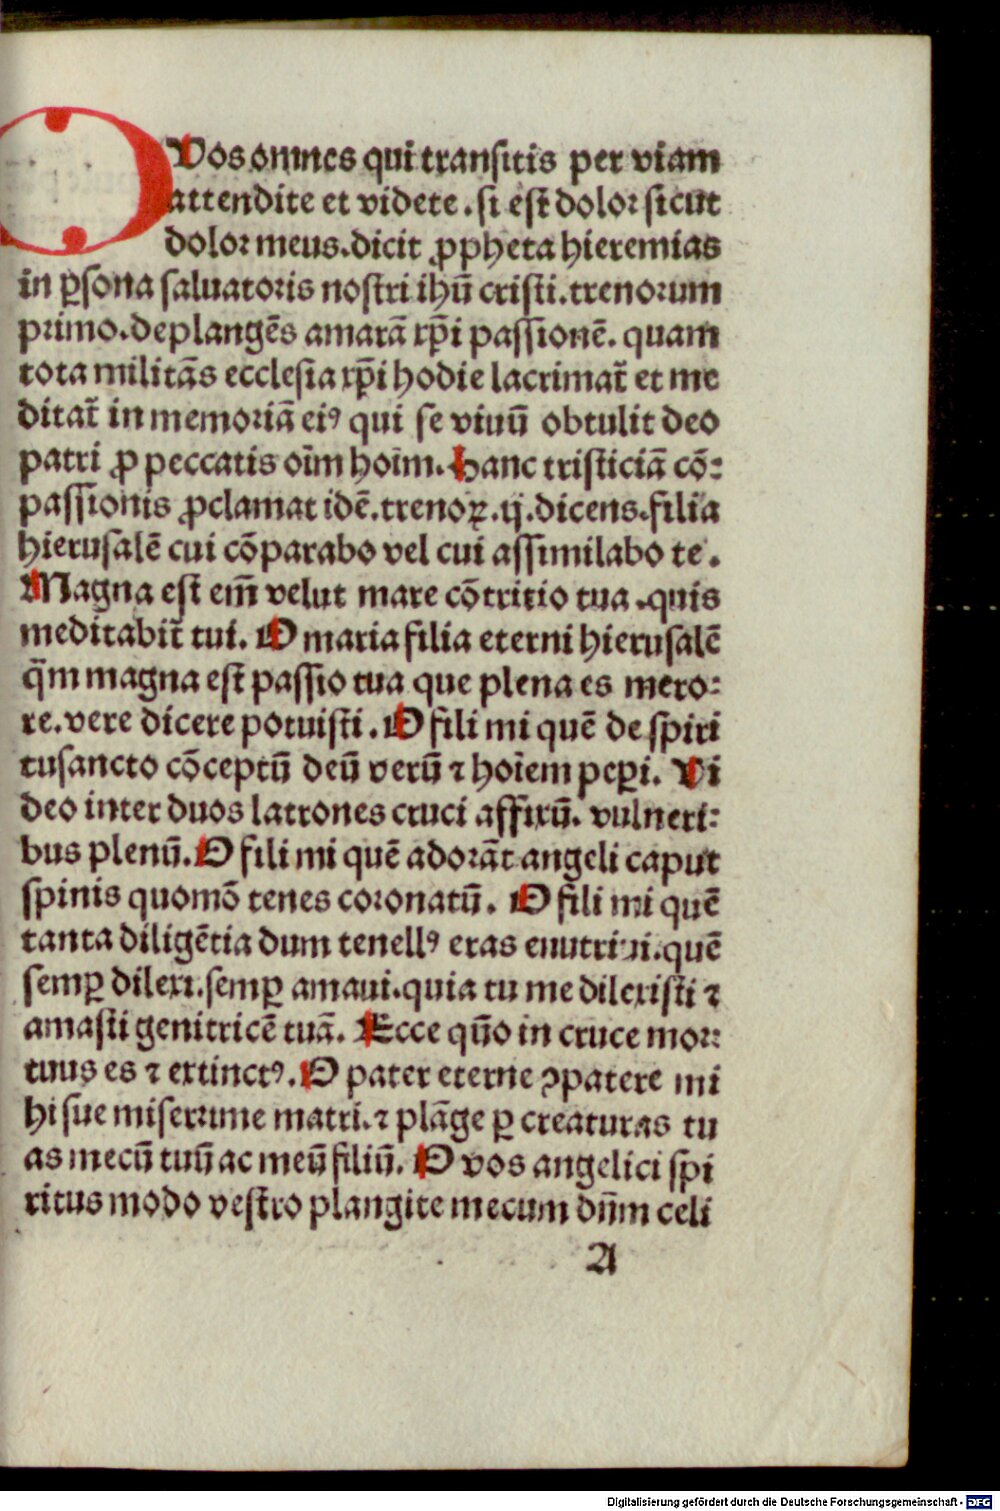 O Vos omnes qui transitis per viam
attendite et videte. si est dolor sicut
dolor meus. dicit ꝓpheta hieremias
in ꝑsona saluatoris nostri ihū cristi. trenorum
primo. deplangēs amarā xp̄i passionē. quam
tota militās ecclesia xp̄i hodie lacrimat̄ et me
ditat̄ in memoriā eiꝰ qui se viuū obtulit deo
patri ꝓ peccatis oīm hoīm. Hanc tristiciā cō⸗
passionis ꝓclamat idē. trenoꝝ. ij. dicens. filia
hierusalē cui cōparabo vel cui assimilabo te.
Magna est em̄ velut mare cōtritio tua. quis
meditabit̄ tui. O maria filia eterni hierusalē
q̄m magna est passio tua que plena es mero⸗
re. vere dicere potuisti. O fili mi quē de spiri
tusancto cōceptū deū verū ⁊ hoīem peꝑi. Vi
deo inter duos latrones cruci affixū. vulneri⸗
bus plenū. O fili mi quē adorāt angeli caput
spinis quomō tenes coronatū. O fili mi quē
tanta diligētia dum tenellꝰ eras enutriui. quē
semꝑ dilexi. semꝑ amaui. quia tu me dilexisti ⁊
amasti genitricē tuā. Ecce quō in cruce mor⸗
tuus es ⁊ extinctꝰ. O pater eterne ꝯpatere mi
hi sue miserrime matri. ⁊ plāge ꝑ creaturas tu
as mecū tuū ac meū filiū. O vos angelici spi
ritus modo vestro plangite mecum dn̄m celi
A
Digitalisierung gefördert durch die Deutsche Forschungsgemeinschaft - DFG